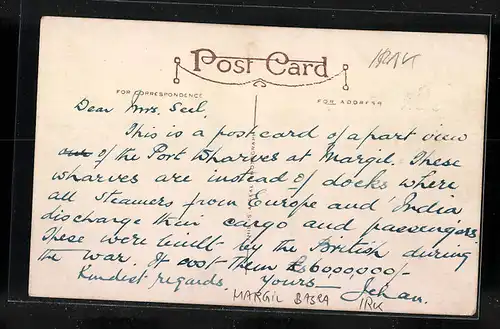 IRAK
Post Card
FOR CORRESPONDENCE
FOR ADDRESS
Dear Mrs. Seil,
This is a postcard of a part view
of the Port Wharves at Margil. These
wharves are instead of docks where
all steamers from Europe and India
discharge their cargo and passengers.
These were built by the British during
the war. It cost them £6,000,000/-
Kindest regards. Yours — Jehan.
MARGIL BASRA
IRK